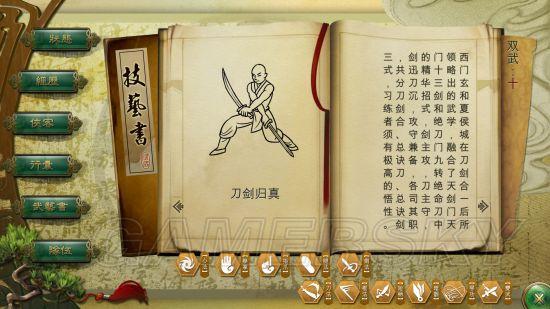 狀態
經歷
俠客
行囊
武藝書
隊伍
技藝書
刀剑归真
双武：十
西门玄和夏侯城在刀剑合一后所
领略出的武学，融合了天剑门天
门十三剑和绝刀门九转绝命刀中
的精华招式，剑主攻，刀主守，
剑迅刀沉，攻守兼备，各司其职
，共分刀剑合、总诀刀、总诀剑
三式，习练者须有极高的悟性。
GAMERSKY